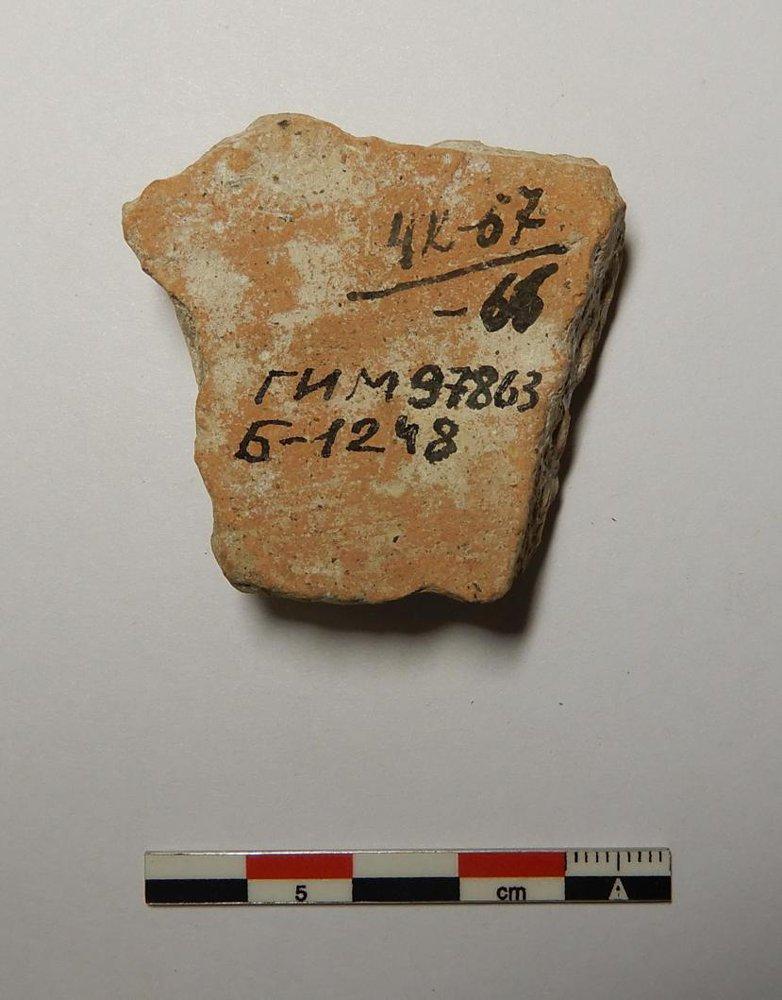 ЧК-67
-66
ГИМ 97863
Б-1248
5 cm